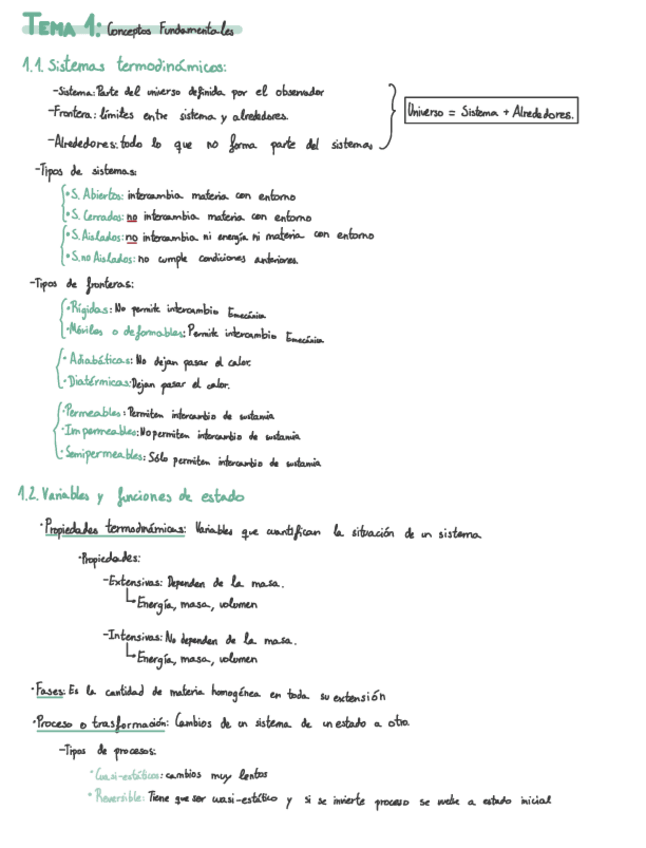 TEMA 1: Conceptos Fundamentales
1.1. Sistemas termodinámicos:
-Sistema: Parte del universo definida por el observador
-Frontera: límites entre sistema y alrededores.
Universo = Sistema + Alrededores.
-Alrededores: todo lo que no forma parte del sistema.
-Tipos de sistemas:
·S. Abiertos: intercambia materia con entorno
·S. Cerrados: no intercambia materia con entorno
·S. Aislados: no intercambia ni energía ni materia con entorno
·S. no Aislados: no cumple condiciones anteriores.
-Tipos de fronteras:
·Rígidas: No permite intercambio Emecánica
·Móviles o deformables: Permite intercambio Emecánica
·Adiabáticas: No dejan pasar el calor.
·Diatérmicas: Dejan pasar el calor.
·Permeables: Permiten intercambio de sustamia
·Impermeables: No permiten intercambio de sustamia
·Semipermeables: Sólo permiten intercambio de sustamia
1.2. Variables y funciones de estado
·Propiedades termodinámicas: Variables que cuantifican la situación de un sistema
·Propiedades:
-Extensivas: Dependen de la masa.
↳Energía, masa, volumen
-Intensivas: No dependen de la masa.
↳Energía, masa, volumen
·Fases: Es la cantidad de materia homogénea en toda su extensión
·Proceso o trasformación: Cambios de un sistema de un estado a otro.
-Tipos de procesos:
·Cuasi-estáticos: cambios muy lentos
·Reversible: Tiene que ser cuasi-estático y si se invierte proceso se vuelve a estado inicial